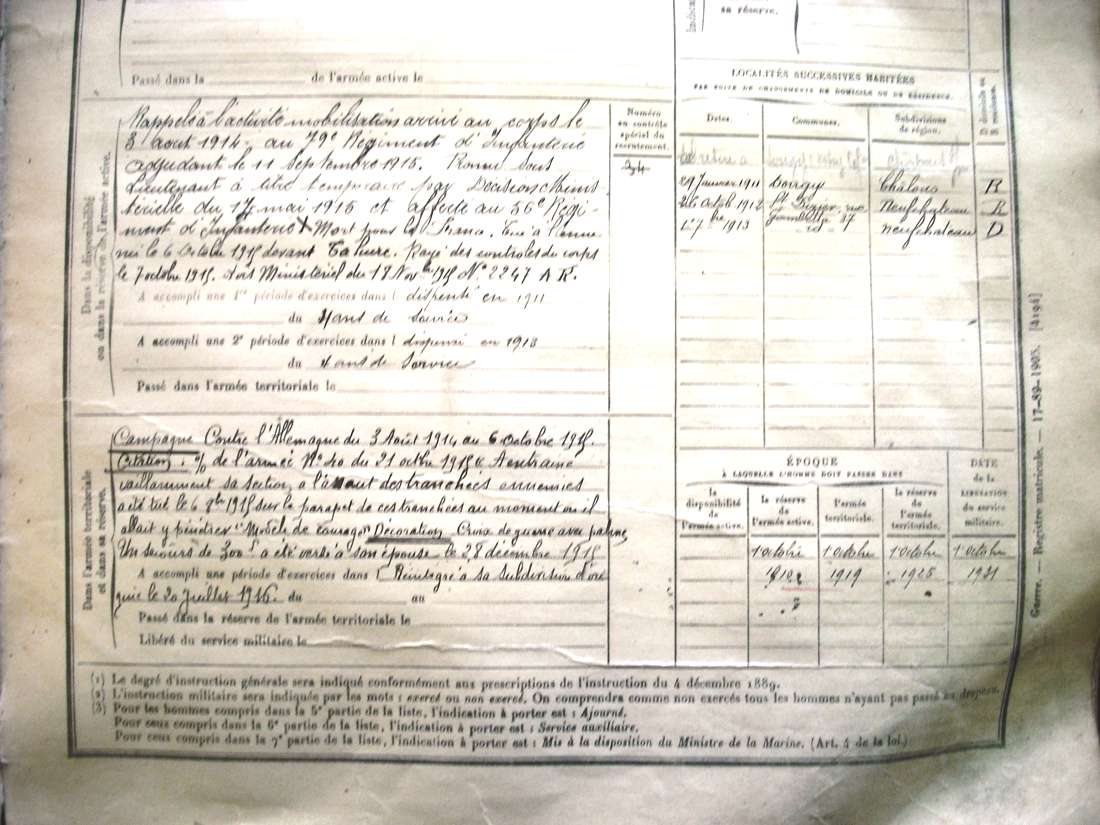 sa réserve.
Passé dans la de l'armée active le
Dans la disponibilité
ou dans la réserve de l'armée active.
Rappelé à l'activité mobilisation arrivé au corps le
3 août 1914, au 79e Régiment d'Infanterie
adjudant le 11 septembre 1915. Nommé Sous
Lieutenant à titre temporaire par Décision Minis-
térielle du 17 mai 1915 et affecté au 56e Régi-
ment d'Infanterie Mort pour la France. Tué à l'enne
mi le 6 Octobre 1915 devant Tahure. Rayé des controles du corps
le 7 octobre 1915. Avis Ministériel du 18 Novbre 1915 No 2247 A R.
A accompli une 1re période d'exercices dans l dispensé en 1911
du 4 ans de service
A accompli une 2e période d'exercices dans l dispensé en 1913
du 4 ans de service
Passé dans l'armée territoriale le
Numéro
au contrôle
spécial du
recrutement.
34
LOCALITÉS SUCCESSIVES HABITÉES
PAR SUITE DE CHANGEMENTS DE DOMICILE OU DE RÉSIDENCE.
Dates. Communes. Subdivisions
de région.
D domicile ou
R résidence.
se retire à
29 Janvier 1911 Châlons R
26 Octob 1912 St Dizier, rue Neufchateau R
Gambetta 37
1er 7bre 1913 Neufchateau D
Dans l'armée territoriale
et dans sa réserve.
Campagne Contre l'Allemagne du 3 Août 1914 au 6 octobre 1915.
Citation : de l'armée No 40 du 21 octbre 1915 A entrainé
vaillamment sa section, à l'assaut des tranchées ennemies
a été tué le 6 8bre 1915 sur le parapet de ces tranchées au moment où il
allait y pénétrer "Modèle de courage" Décoration Croix de guerre avec palme
Un secours de 300f a été versé à son épouse le 28 décembre 1915
A accompli une période d'exercices dans l Réintégré à sa subdivision d'ori
gine le 20 Juillet 1916. du au
Passé dans la réserve de l'armée territoriale le
Libéré du service militaire le
ÉPOQUE
À LAQUELLE L'HOMME DOIT PASSER DANS
DATE
de la
LIBÉRATION
du service
militaire.
la
disponibilité
de
l'armée active.
la réserve
de
l'armée active.
l'armée
territoriale.
la réserve
de
l'armée
territoriale.
1 octobre 1 octobre 1 octobre 1 octobre
1919 1925 1931
Guerre. — Registre matricule. — 17-89-1905. [4194]
(1) Le degré d'instruction générale sera indiqué conformément aux prescriptions de l'instruction du 4 décembre 1889.
(2) L'instruction militaire sera indiquée par les mots : exercé ou non exercé. On comprendra comme non exercés tous les hommes n'ayant pas passé au drapeau.
(3) Pour les hommes compris dans la 5e partie de la liste, l'indication à porter est : Ajourné.
Pour ceux compris dans la 6e partie de la liste, l'indication à porter est : Service auxiliaire.
Pour ceux compris dans la 7e partie de la liste, l'indication à porter est : Mis à la disposition du Ministre de la Marine. (Art. 4 de la loi.)